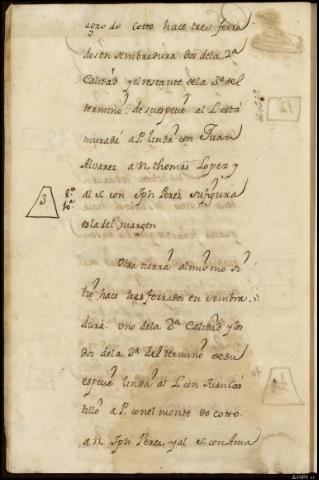 agro do cotto hace tres ferra
dos en sembradura dos dela 2ª
Calidad y el restante dela 3ª del
termino de su espeue al L. está
murada a P. linda con Juan
Alvarez a N. thomas Lopez y
al S. con Jph Perez su figura
es la del margen
3
Otra tierra al mismo si
tio hace tres ferrados en sembra
dura uno dela 2ª Calidad y los
dos dela 3ª del termino de su
espeue linda al L. con Juan Cas
tillo a P. con el monte do cotto
a N. Jph Perez y al S. con Ama
AHPL